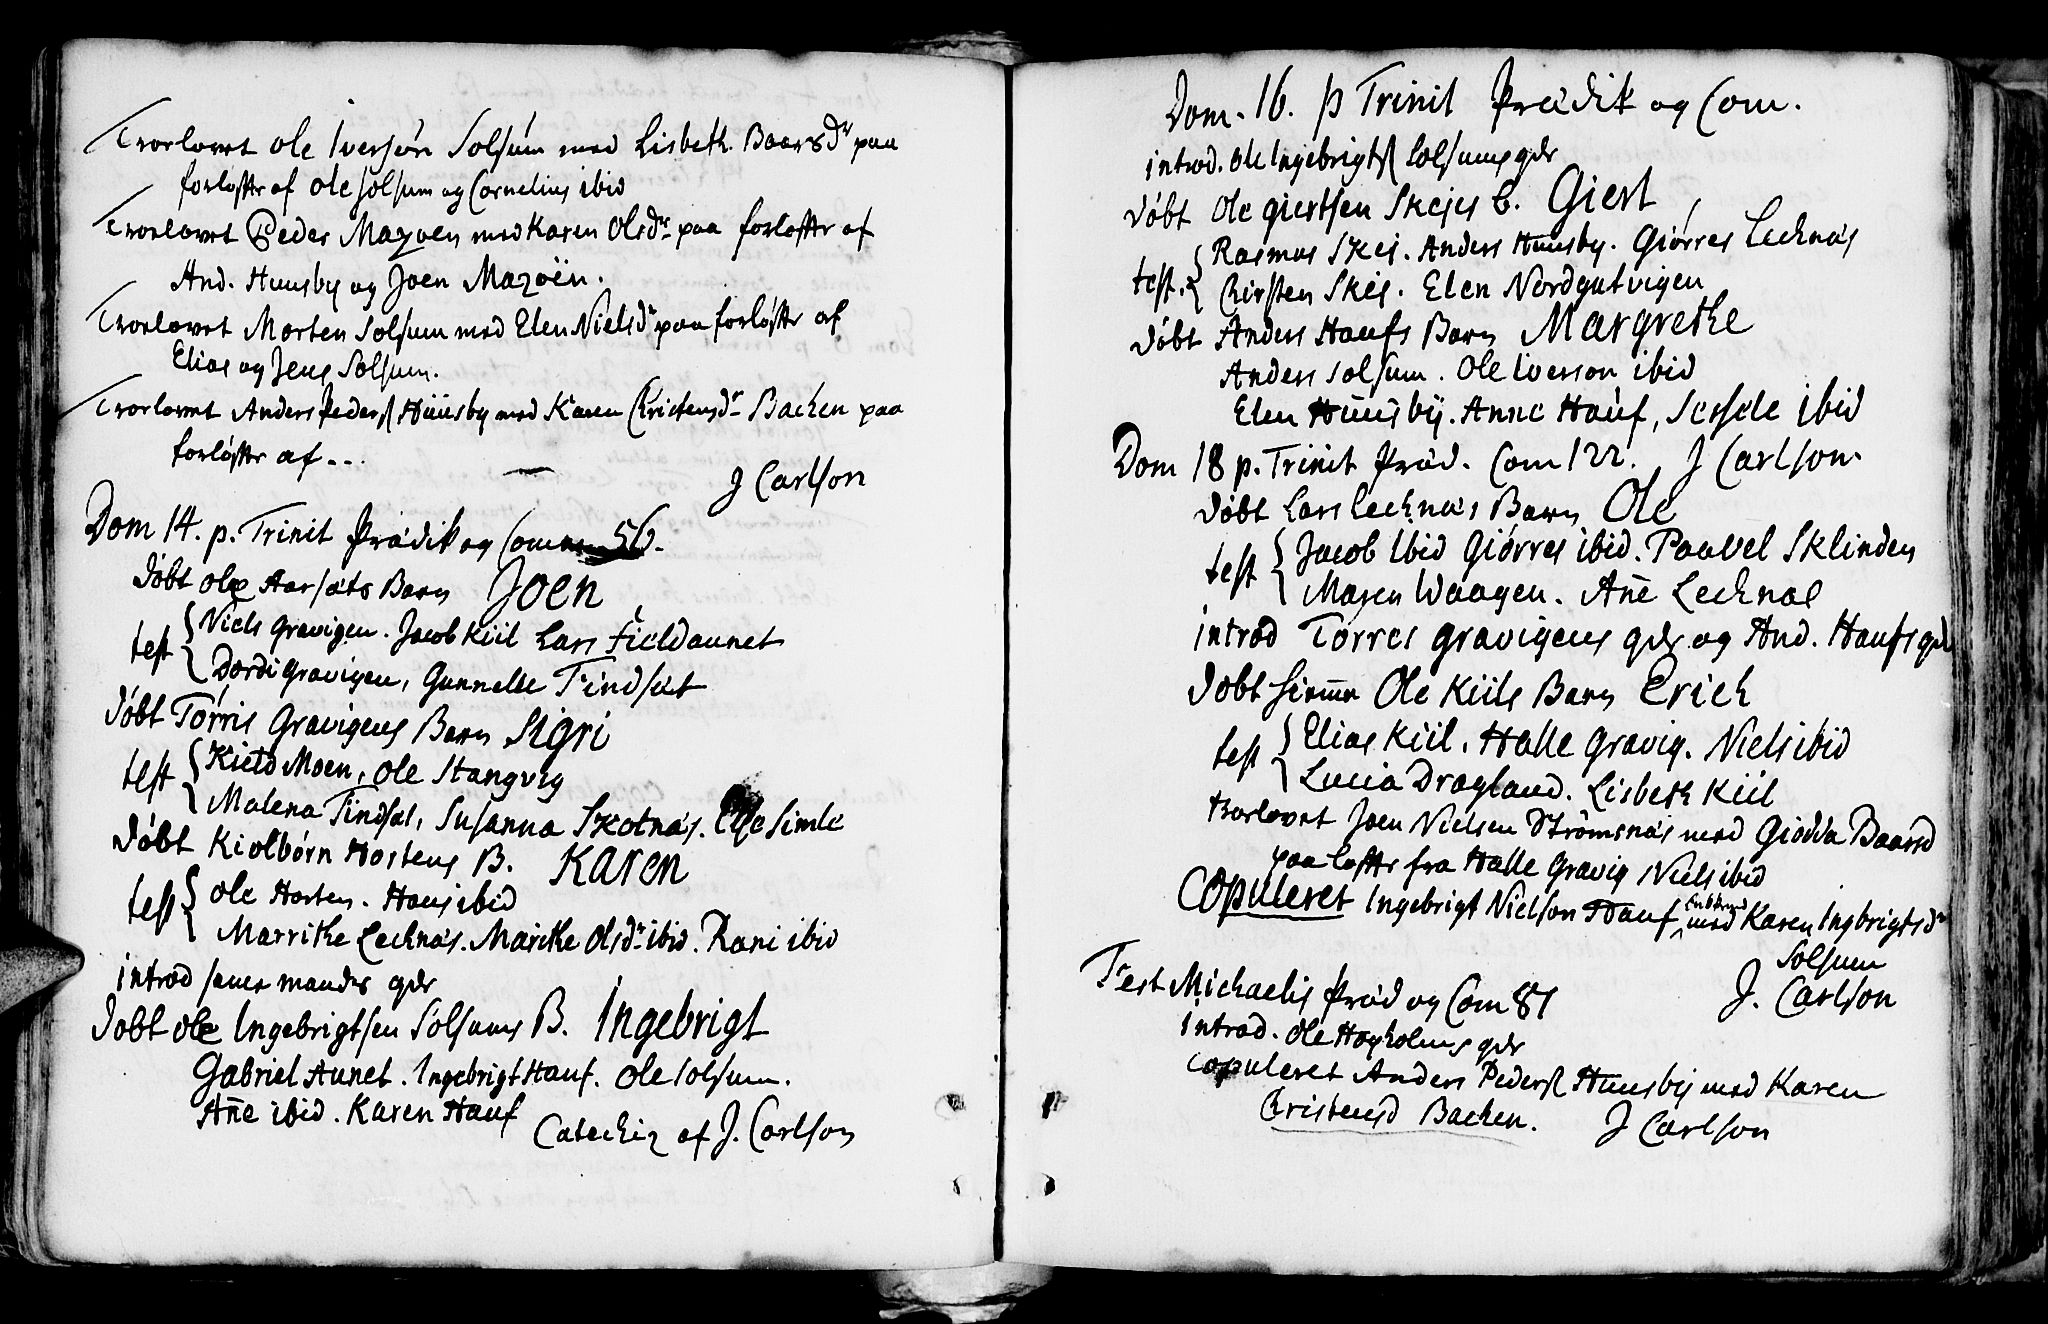 Trorlovet Ole Iversøn Solsum med Lisbeth Baarsdr paa
forløftr af Ole Solsum og Cornelius ibid
Trorlovet Peder Mazoen med Karen Olsdr paa forløftr af
And. Huusby og Joen Mazoën.
Trorlovet Morten Solsum med Elen Nielsdr paa forløftr af
Elias og Jens Solsum.
Trorlovet Anders Peders Huusby med Karen Christensdr Bachen paa
forløftr af ..
J Carlson
Dom 14. p. Trinit Prædik og Com 56.
døbt Ole Aarsæts Barn Joen
test { Niels Gravigen. Jacob Kiil Lars Fieldaunet
Dordi Gravigen, Gunnelle Tindsæt
døbt Torris Gravigens Barn Sigri
test { Kield Moen, Ole Stangvig
Malena Tindsæt, Susanna Skotnæs. Simle
døbt Kiolbørn Hortens B. Karen
test { Ole Horten. Hans ibid
Marrithe Lechnæs. Marithe Olsdr ibid. Rani ibid
introd mandes qdr
døbt Ole Ingebrigtsen Solsums B. Ingebrigt
Gabriel Aunet. Ingebrigt Hauf. Ole Solsum.
Añe ibid. Karen Hauf
Catechiz af J. Carlson
Dom. 16. p Trinit Prædik og Com.
introd. Ole Ingebrigts Solsums qdr
døbt Ole Giertsen Skejes B. Giert
test. { Rasmus Skej. Anders Huusby. Giørres Lechnæs
Chirsten Skej. Elen Nordgutvigen
døbt Anders Haufs Barn Margrethe
Anders Solsum. Ole Iverson ibid
Elen Huusby. Anne Hauf, Sessele ibid
Dom 18 p. Trinit Præd. Com 122. J Carlson.
døbt Lars Lechnæs Barn Ole
test { Jacob ibid Giørres ibid. Paavel Sklinden
Maren Waagen. Añe Lechnæs
introd Torres Gravigens qdr og And. Haufs qdr
døbt Ole Kiils Barn Erich
test { Elias Kiil. Halle Gravig. Niels ibid
Lucia Dragland. Lisbeth Kiil
trorlovet Joen Nielsen Strömsnæs med Giødda Baarsd
paa løftr fra Halle Gravig Niels ibid
Copuleret Ingebrigt Nielson Hauf med Karen Ingbrigtsdr
Solsum
J. Carlson
Fest Michaelis Præd og Com 81
introd. Ole Høyholms qdr
Copuleret Anders Peders Huusby med Karen
Christensd Bachen. J Carlson